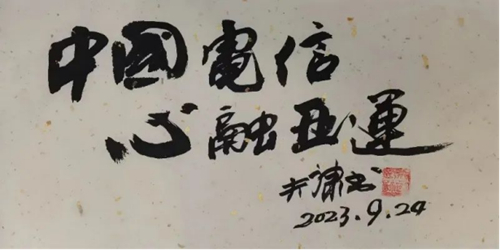 中國電信
心融亞運
2023.9.24